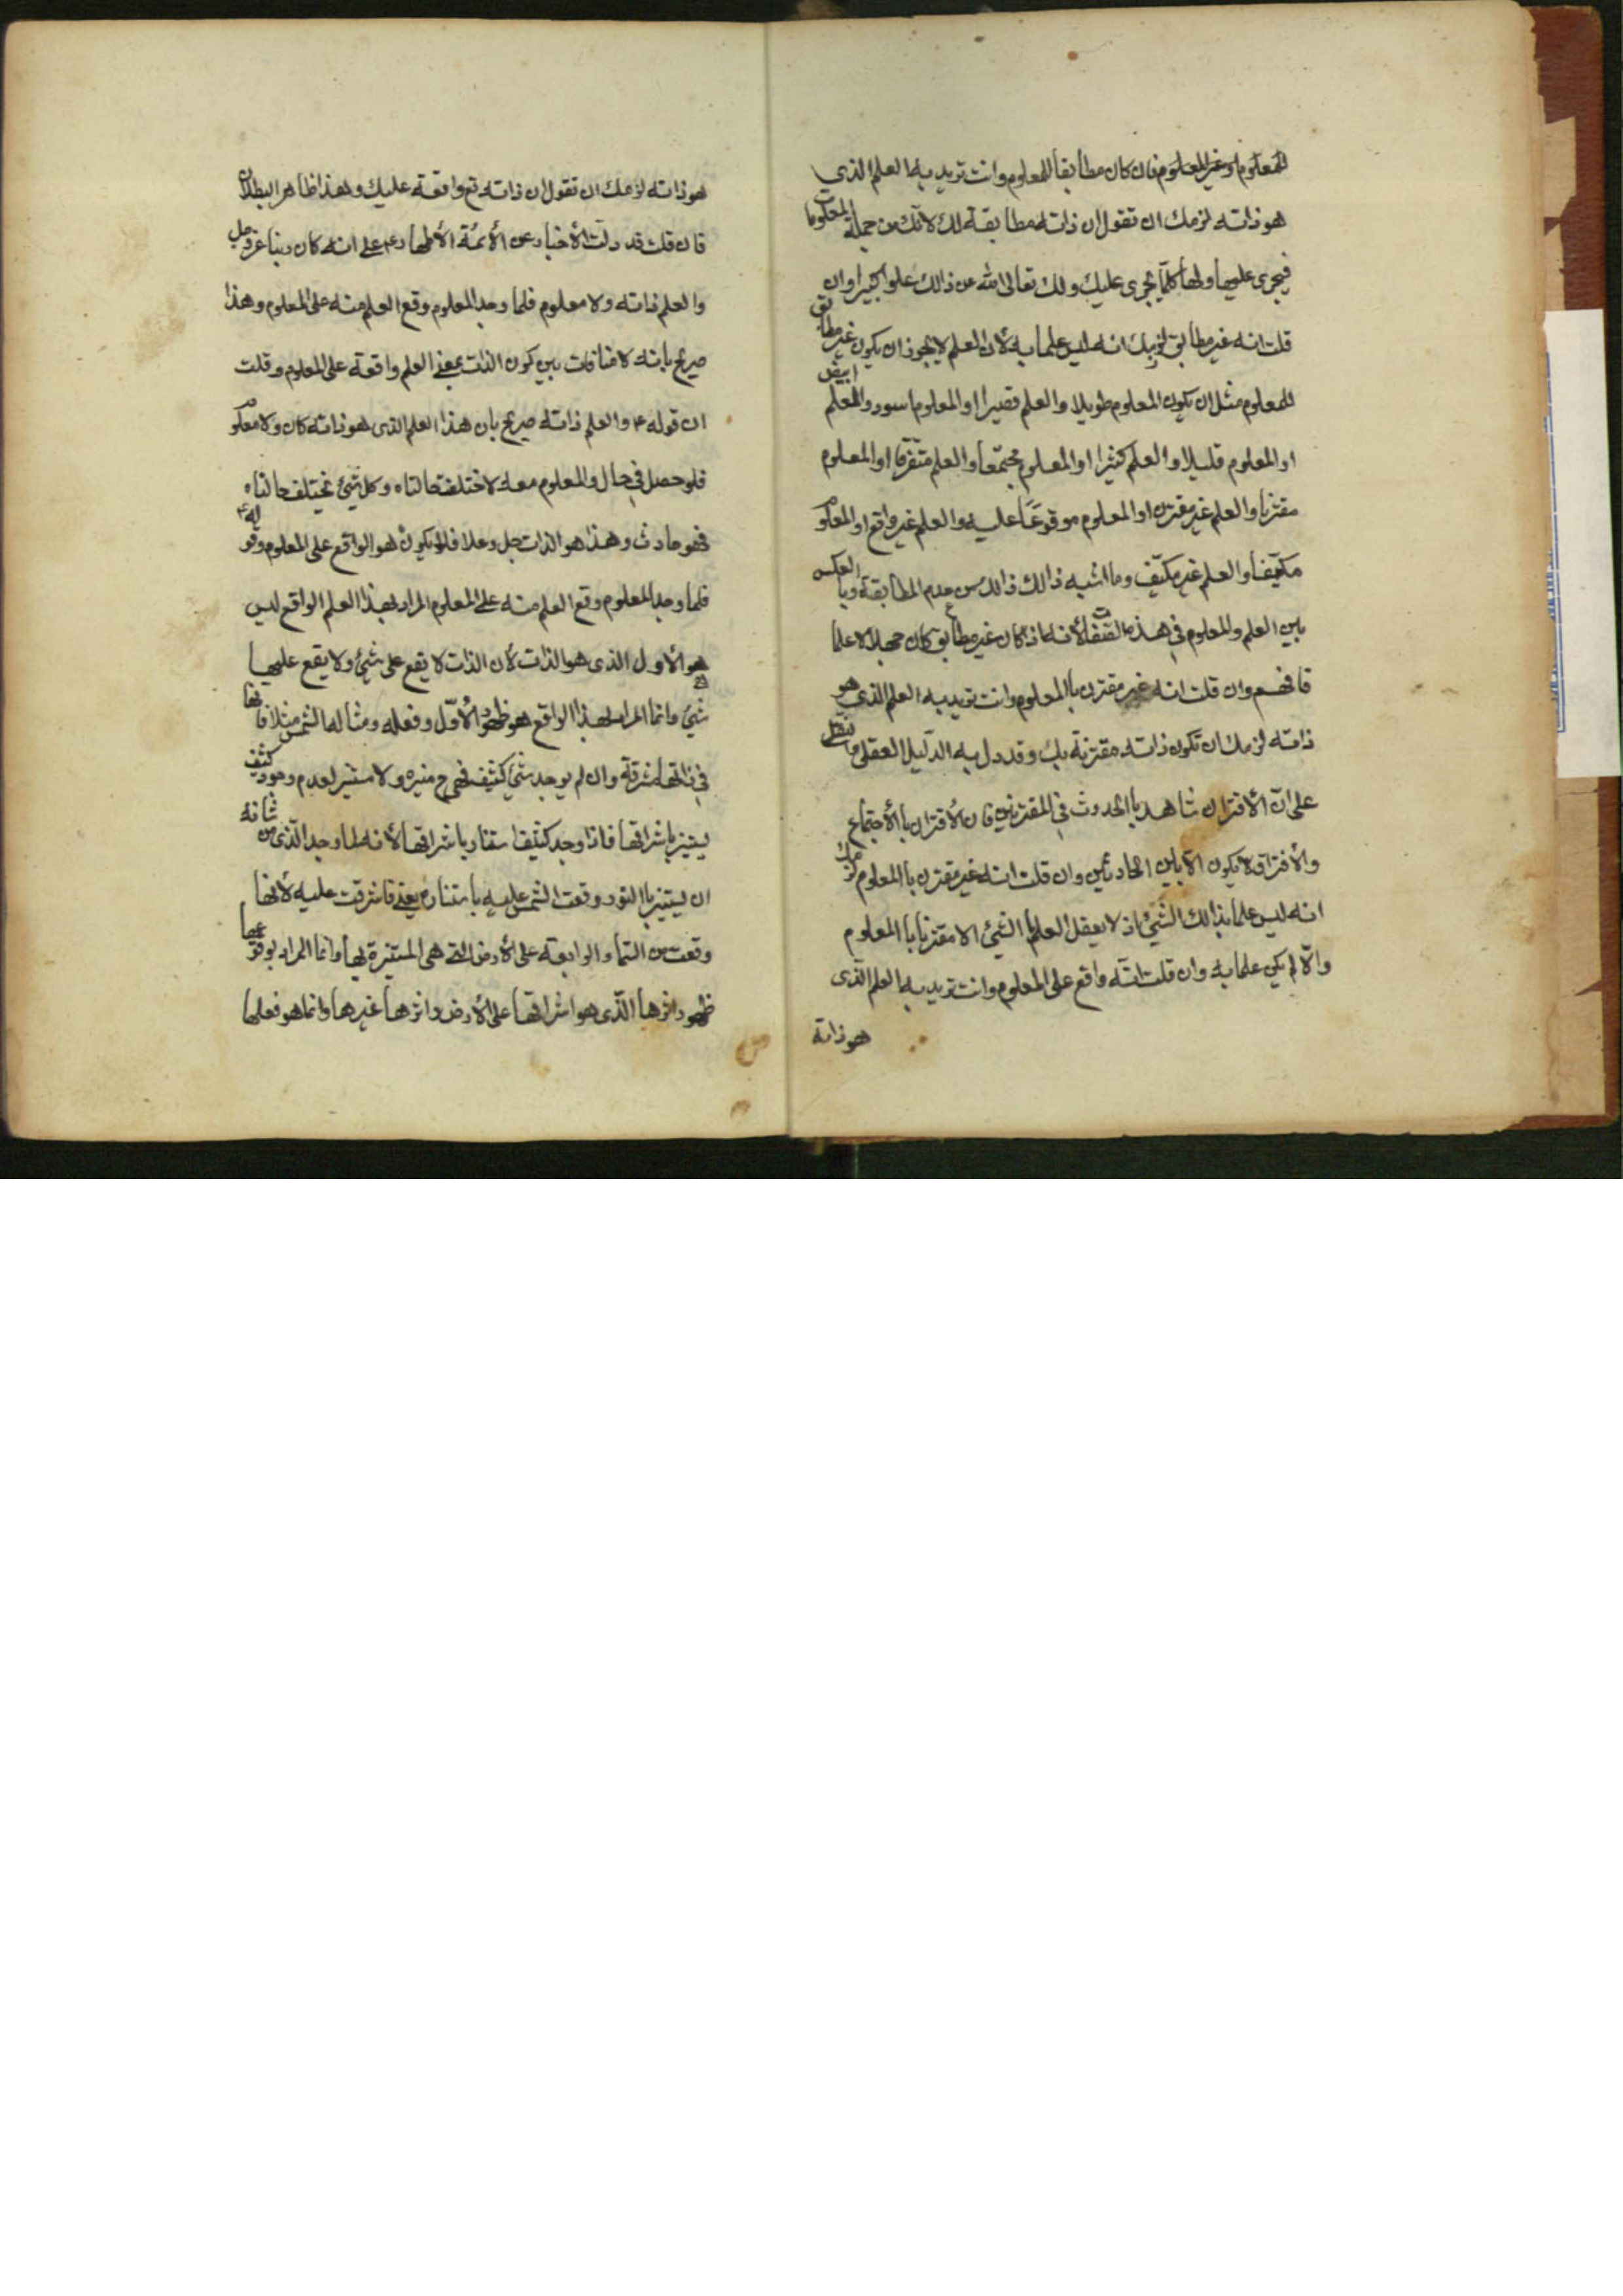 للمعلوم او غير المعلوم فان كان مطابقا للمعلوم وانت تريد به العلم الذي
هو ذاته لزمك ان تقول ان ذاته مطابقة لك لانك من جملة المعلومات
فيجرى عليها ولها كلما يجرى عليك ولك تعالى الله عن ذالك علوا كبيرا وان
قلت انه غير مطابق لزمك انه ليس علما به لأن العلم لا يجوز ان يكون غير مطابق
للمعلوم مثل ان يكون المعلوم طويلا والعلم قصيرا او المعلوم اسود والعلم ابيض
او المعلوم قليلا والعلم كثيرا او المعلوم مجتمعا والعلم متفرقا او المعلوم
مقترنا والعلم غير مقترن او المعلوم موقوعًا عليه والعلم غير واقع او المعلوم
مكيّفا والعلم غير مكيّف وما اشبه ذالك من عدم المطابقة وبالعكس
بين العلم والمعلوم في هذه الصفة لأنه اذا كان غير مطابق كان جهلا لا علما
فافهم وان قلت انه غير مقترن با المعلوم وانت تريد به العلم الذي هو
ذاته لزمك ان تكون ذاته مقترنة بك وقد دل به الدّليل العقلى والنقلى
على انّ الأقتران شاهد با الحدوث في المقترنين فان الأقتران با الأجتماع
والأفتراق لا يكون الاّ بين الحادثين وان قلت انه غير مقترن با المعلوم لزمك
انه ليس علما بذالك الشّيئ اذ لا يعقل العلم با الشيئ الا مقترنا با المعلوم
والاّ لم يكن علما به وان قلت انّه واقع على المعلوم وانت تريد به العلم الّذى
هو ذاته
هو ذاته لزمك ان تقول ان ذاته تع واقعة عليك وهذا ظاهر البطلان
فان قلت قد دلت الأخبار عن الأئمّة الأطهار ع على انه كان ربنا عز وجل
والعلم ذاته ولا معلوم فلما وجد المعلوم وقع العلم منه على المعلوم وهذا
صريح بانه لا منافات بين كون الذات بمعنى العلم واقعة على المعلوم وقلت
ان قوله ع والعلم ذاته صريح بان هذا العلم الذى هو ذاته كان ولا معلوم
فلو حصل في حال والمعلوم معه لاختلفت حالتاه وكل شيئ تختلف حالتاه
فهو حادث وهذا هو الذات جل وعلا فلا يكون هو الواقع على المعلوم وقوله ع
فلما وجد المعلوم وقع العلم منه على المعلوم المراد بهذا العلم الواقع ليس
هو الأول الذى هو الذات لأن الذات لا يقع على شيئ ولا يقع عليها
شيئ وانما المراد بهذا الواقع هو ظهور الأوّل وفعله ومثاله الشمس مثلا فانها
في ذاتها مشرقة وان لم يوجد شيئ كثيف فهى ح منيره ولا مستنير لعدم وجود كثيف
يستنير باشراقها فاذا وجد كثيف استنار باشراقها لأنه لما وجد الّذى من شانه
ان يستنير با النور وقعت الشمس عليه باستنارة يعنى فاشرقت عليه لا انها
وقعت من السّما الرابعة على الأرض التى هى المستنيرة بها وانما المراد بوقوعها
ظهور اثرها الّذى هو اشراقها على الأرض واثرها غيرها وانما هو فعلها